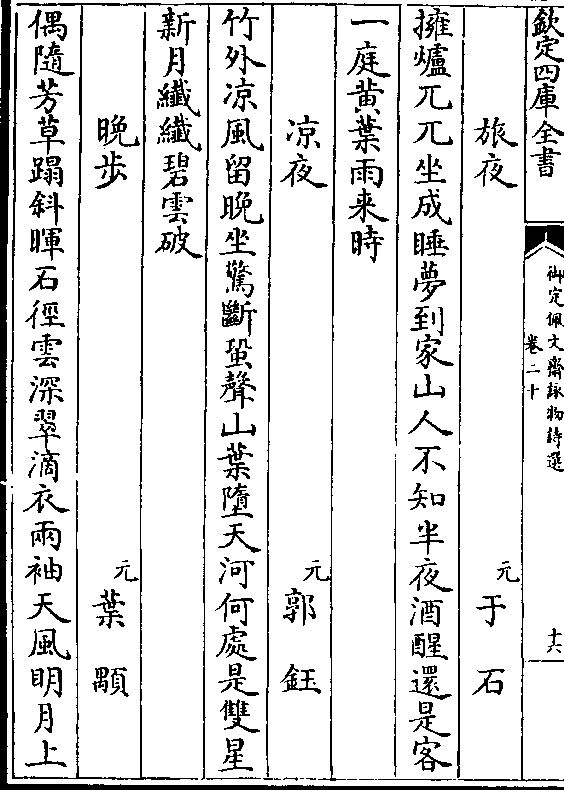 欽定四庫全書
御定佩文齋詠物詩選
卷二十
十六
旅夜
元于石
擁爐兀兀坐成睡夢到家山人不知半夜酒醒還是客
一庭黄葉雨来時
凉夜
元郭鈺
竹外凉風留晚坐驚斷蛩聲山葉墮天河何處是雙星
新月纖纖碧雲破
晚步
元葉顒
偶隨芳草蹋斜暉石徑雲深翠滴衣兩袖天風明月上